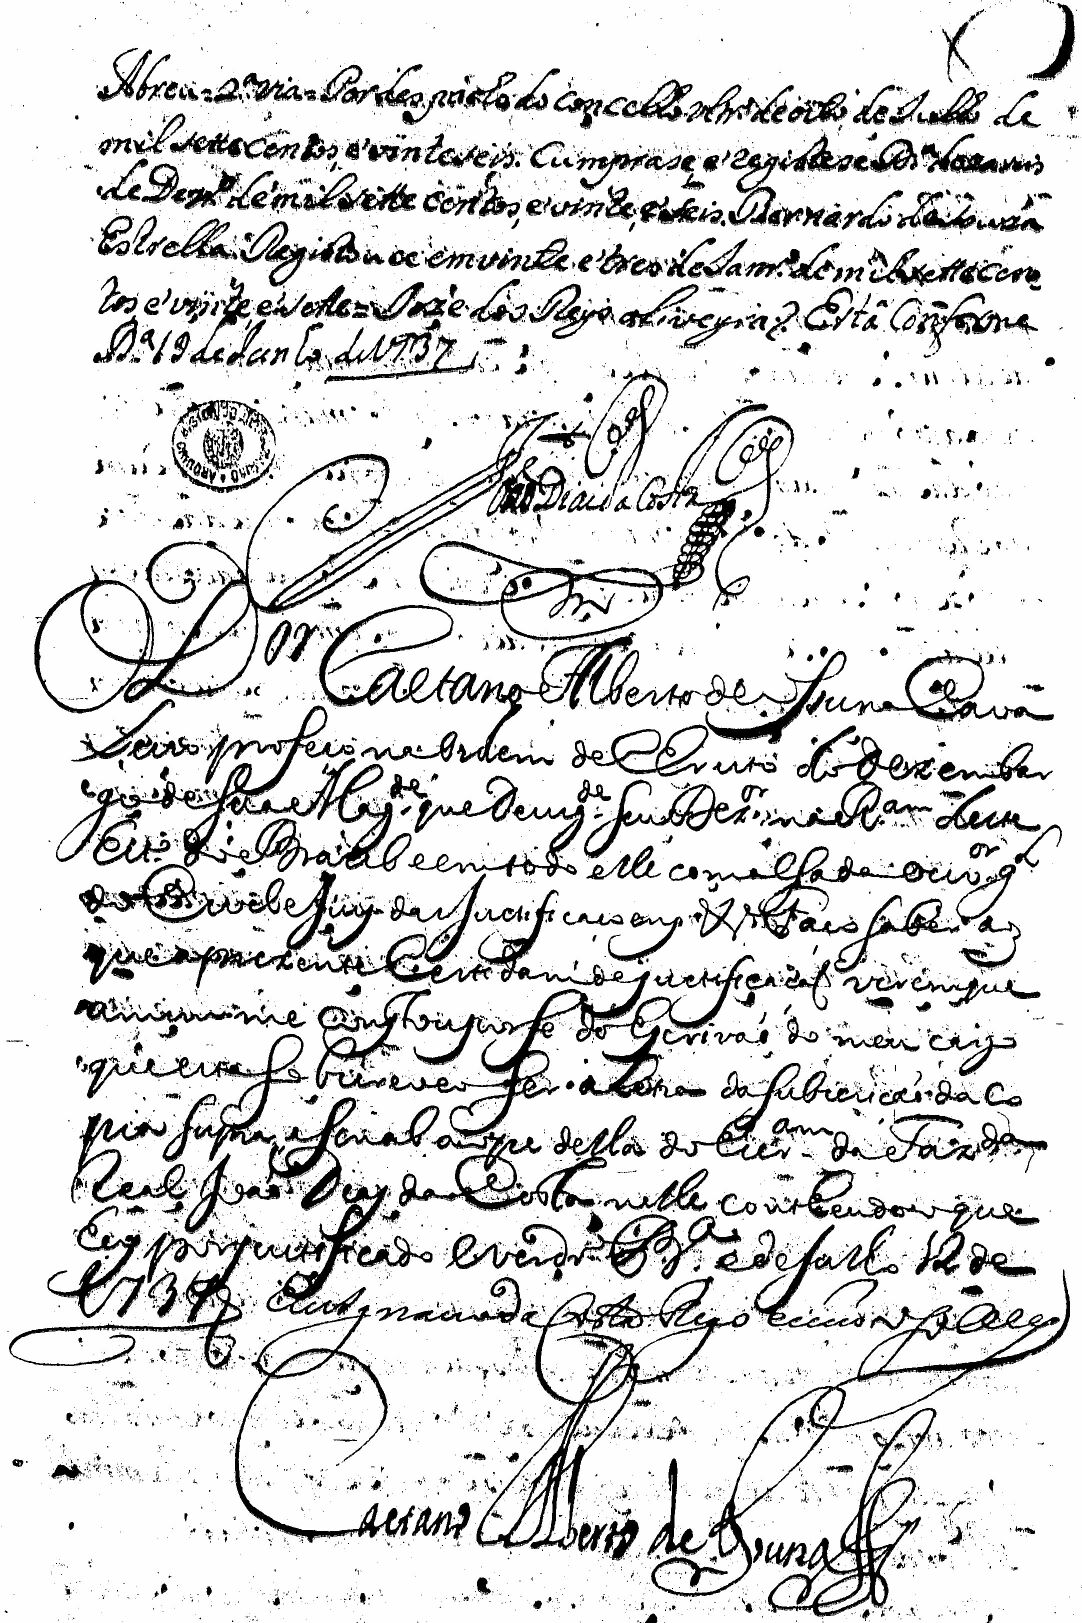 Abreu = 2ª via = Por despacho do Concelho Ultrº de oito de Julho de
mil sette centos, e vinte e seis. Cumprase, e registese Bª
de Dezrº de mil sette centos, e vinte, e seis. Bernardo de Souza
Estrella. Registouce em vinte e tres de Janrº de mil sette cen
tos e vinte e sette = Joze dos Reys oliveyra. Está Conforme
Bª 19 de Junho de 1737
João Dias da Costa
Dor Caetano Alberto de Cava
leiro professo na ordem de Christo do dezembar
go de Sua Magde que Deus gde Seu Dezor na Ram deste
Estº do Brazil e em todo elle com alsada ouvor gl
do Civel e Juiz das Justificacoens &ª Faco saber aos
que a prezente Certidam de justificacaõ virem que
a mim me Constou por fe do Escrivaõ do meu cargo
que esta sobscreveo ser a Letra da subscricaõ da co
pia supra e signal ao pe della do Escram da Fazda
Real Joaõ Dias da Costa nella contheudo o que
Hey por justificado e verdrº Bª e de Julho 12 de
1737 da Costa Rego
Caetano Alberto de